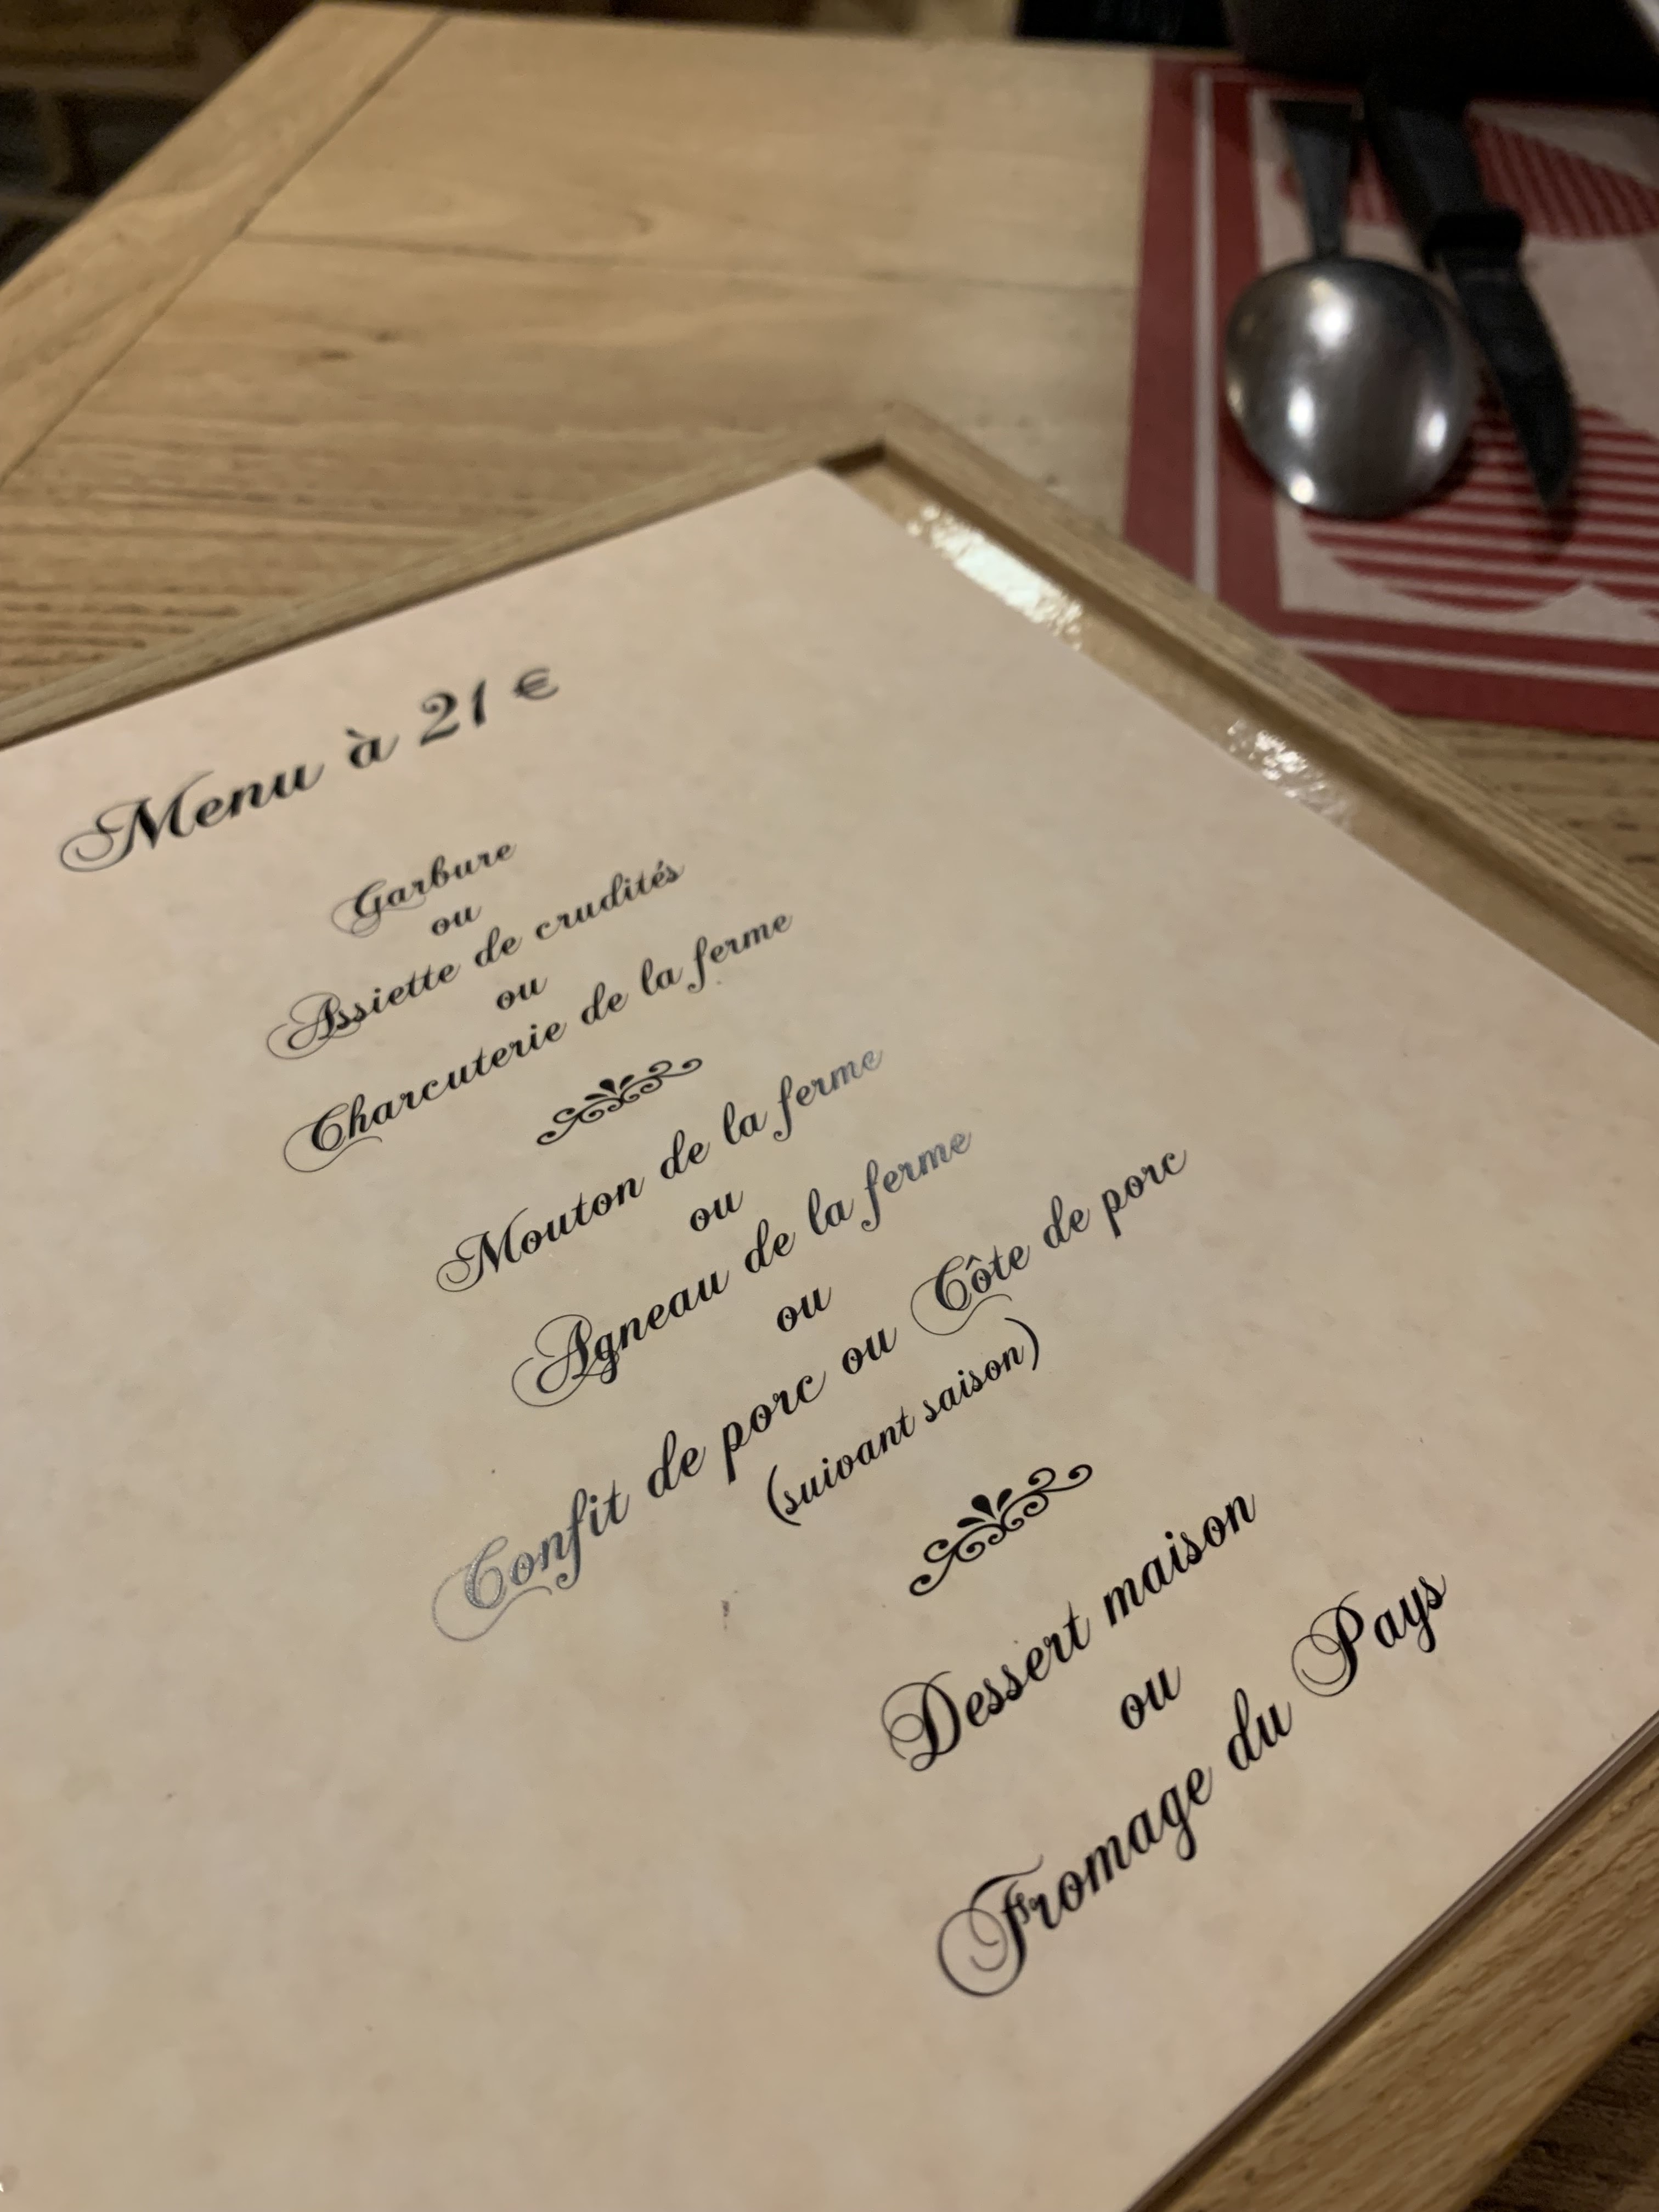 Menu à 21 €
Garbure
ou
Assiette de crudités
ou
Charcuterie de la ferme
Mouton de la ferme
ou
Agneau de la ferme
ou
Confit de porc ou Côte de porc
(suivant saison)
Dessert maison
ou
Fromage du Pays